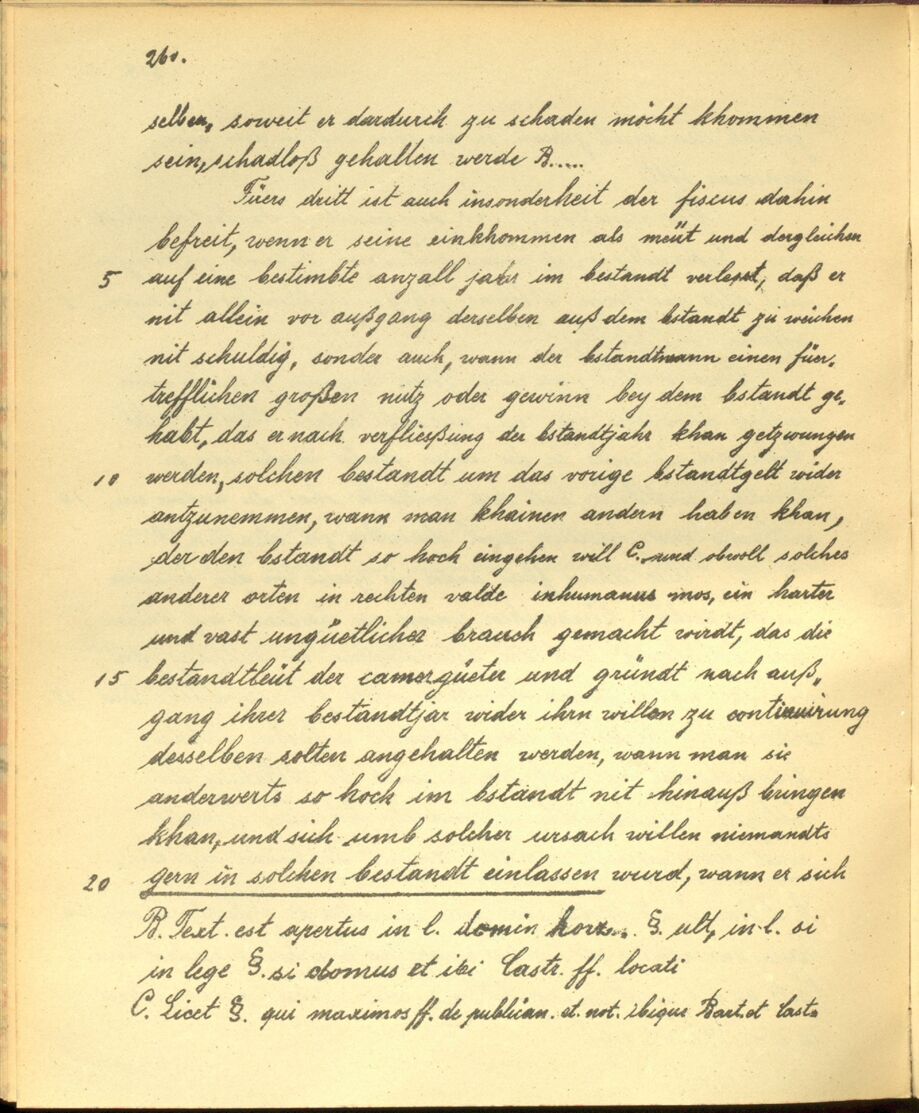 260.
selben, soweit er dardurch zu schaden möcht khommen
sein, schadloß gehalten werde B.....
Füers dritt ist auch insonderheit der fiscus dahin
befreit, wenn er seine einkhommen als meüt und dergleichen
5 auf eine bestimbte anzall jahr im bestandt verlesst, daß er
nit allein vor außgang derselben auß dem bstandt zu weichen
nit schuldig, sonder auch, wann der bstandtmann einen füer-
trefflichen großen nutz oder gewinn bey dem bstandt ge-
habt, das er nach verfliesßung der bstandtjahr khan getzwungen
10 werden, solchen bestandt um das vorige bstandtgelt wider
antzunemmen, wann man khainen andern haben khan,
der den bstandt so hoch eingehen will C. und obwoll solches
anderer orten in rechten valde inhumanus mos, ein harter
und vast ungüetlicher brauch gemacht wirdt, das die
15 bestandtleüt der camergüeter und gründt nach auß-
gang ihrer bestandtjar wider ihrn willen zu continuirung
desselben solten angehalten werden, wann man sie
anderwerts so hoch im bstandt nit hinauß bringen
khan, und sich umb solcher ursach willen niemandts
20 gern in solchen bestandt einlassen wurd, wann er sich
B. Text. est apertus in l. domin horr... §. ult, in l. si
in lege §. si domus et ibi Castr. ff. locati
C. Licet §. qui maximos ff. de publican. et. not. ibique Bart. et Cast.